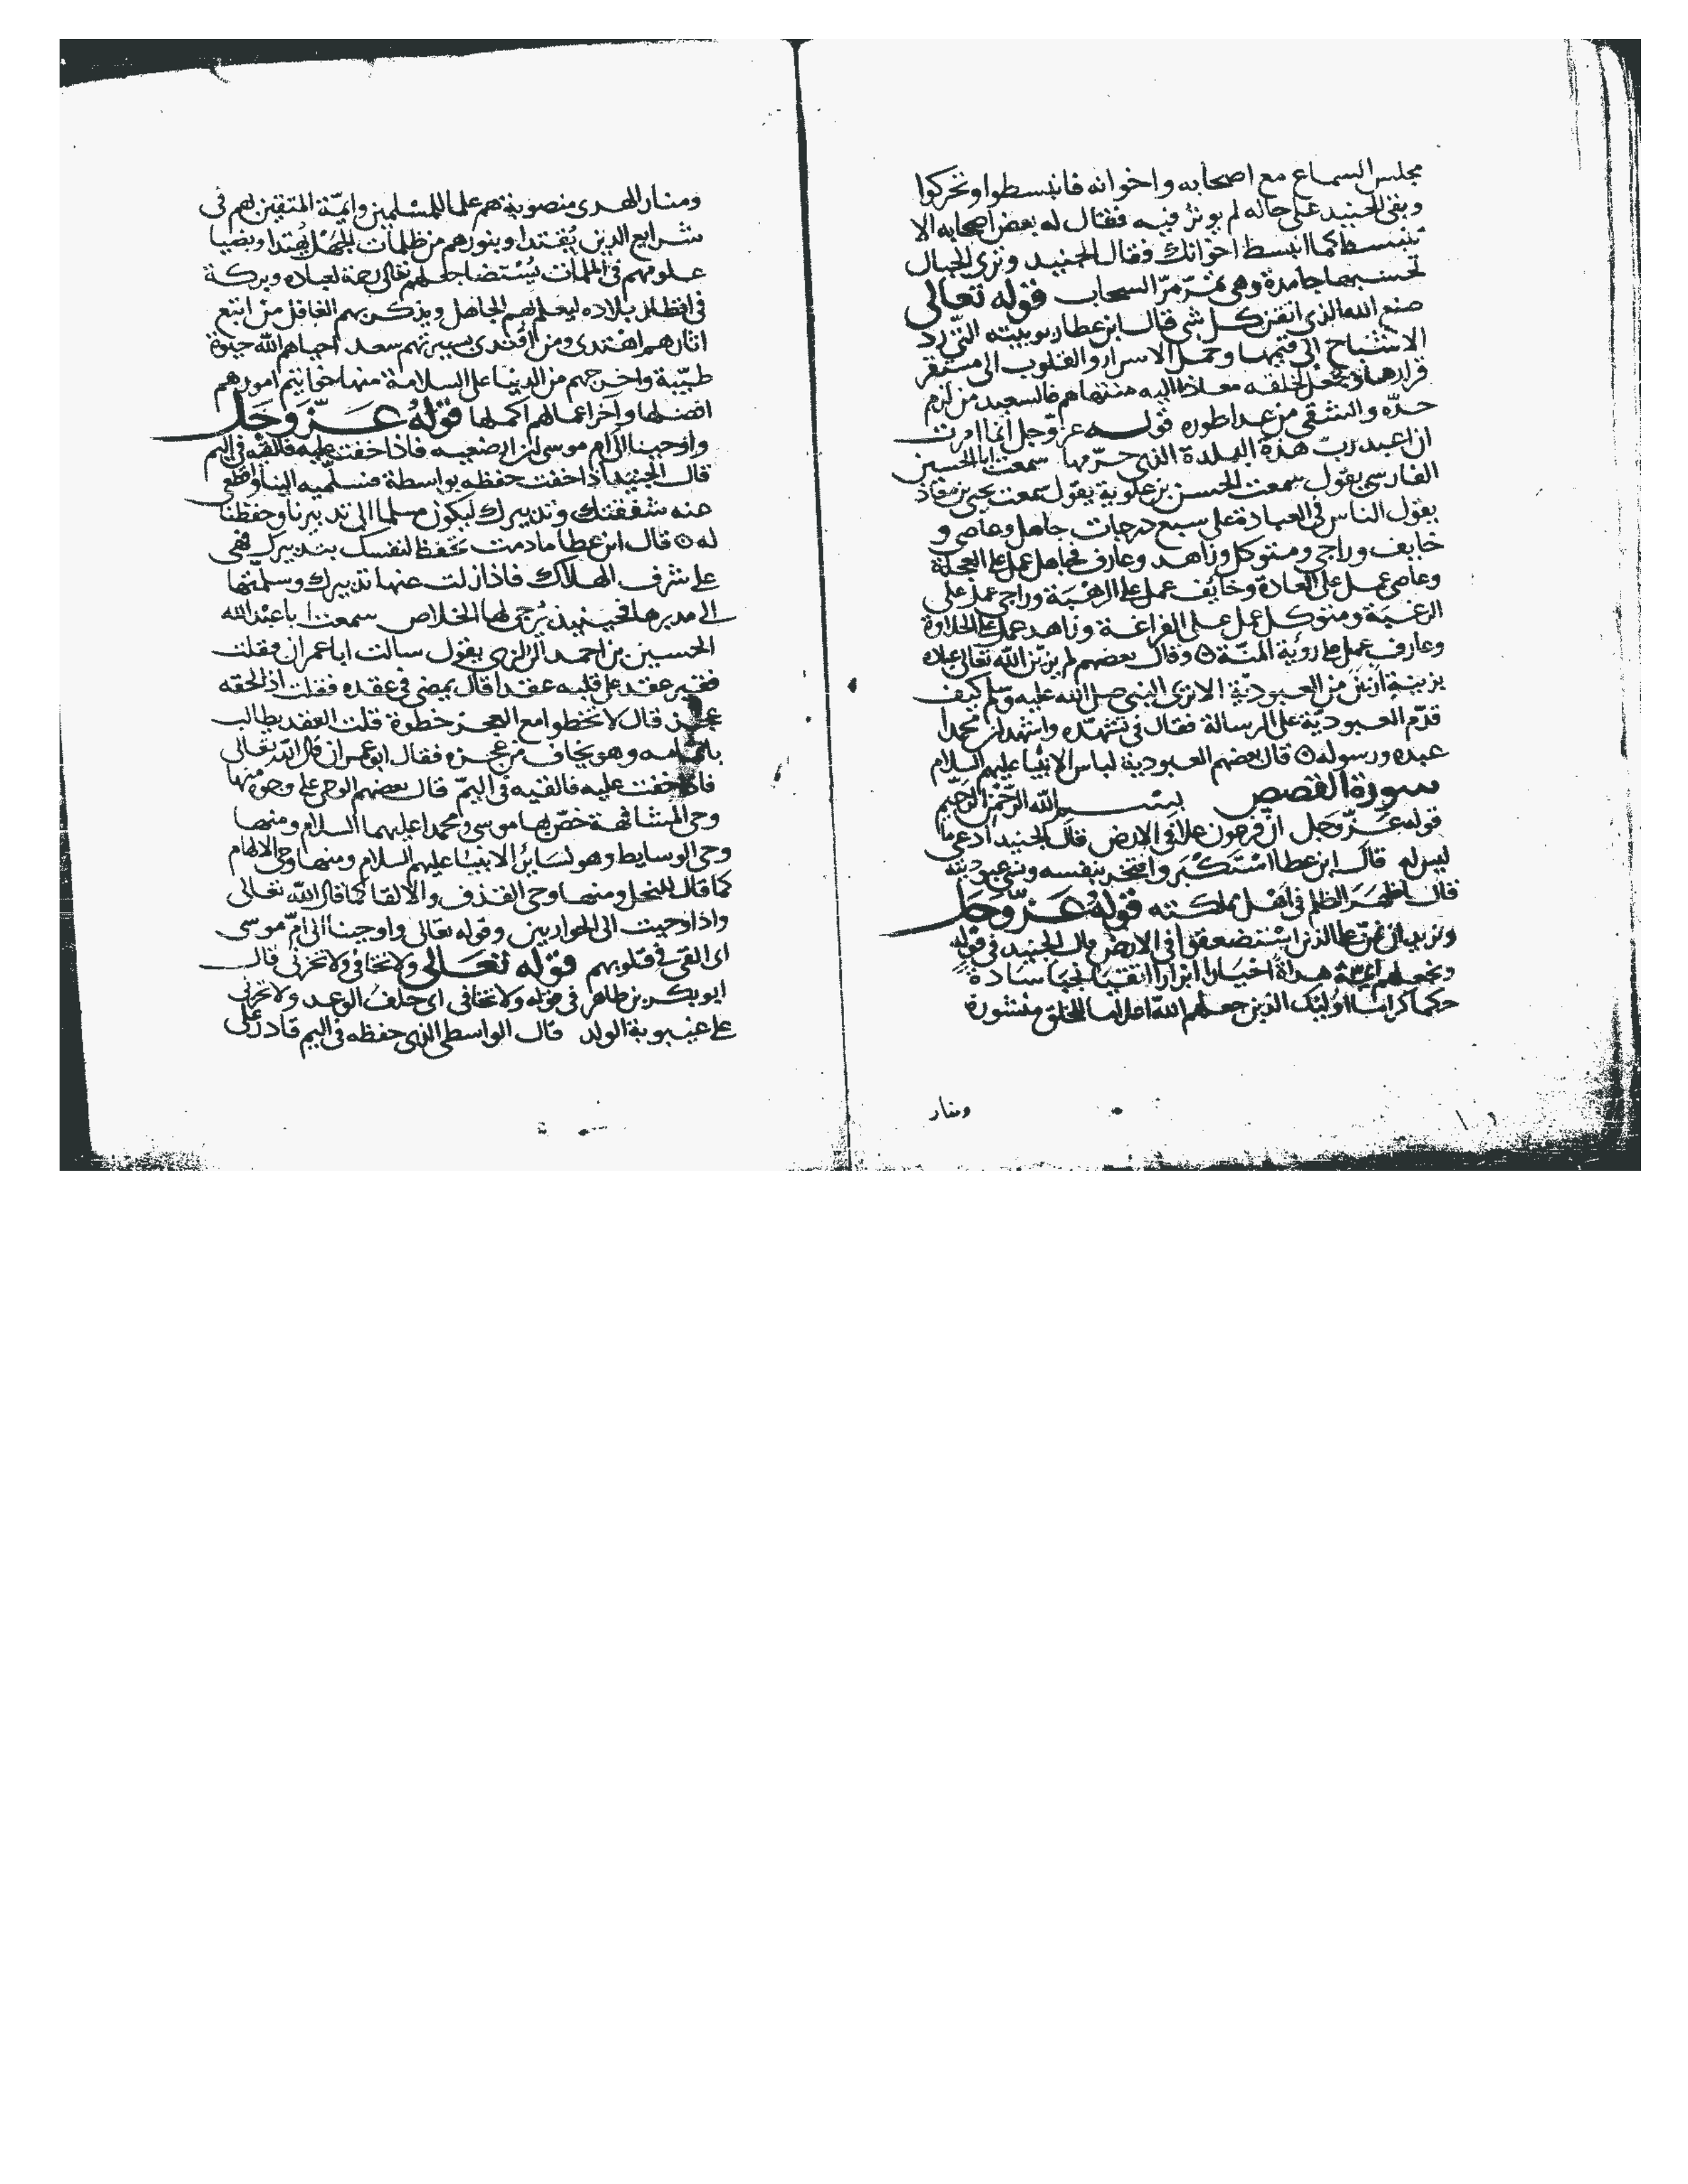 مجلس السماع مع اصحابه واخوانه فانبسطوا وتحركوا
وبقى الجنيد على حاله لم يوثر فيه فقال له بعض اصحابه الا
تنبسط كما انبسط اخوانك فقال الجنيد وترى الجبال
تحسبها جامدة وهى تمر مرّ السحاب قوله تعالى
صنع الله الذى اتقن كل شى قال ابن عطا ربوبيته التى رد
الاشباح الى قيمها وحمل الاسرار والقلوب الى مستقر
قرارها وجعل لخلقه معادا اليه منتهاهم فالسعيد من لزم
حدّه والشقى من عدا طوره قوله عزّ وجل انما امرت
ان اعبد ربّ هذه البلدة الذى حرّمها سمعت ابا الحسين
الفارسى يقول سمعت الحسن بن علوية يقول سمعت يحيى بن معاذ
يقول الناس فى العبادة على سبع درجات جاهل وعاصى و
خايف وراجى ومتوكل وزاهد وعارف فجاهل عمل على العجلة
وعاصى عمل على العادة وخايف عمل على الرهبة وراجى عمل على
الرغبة ومتوكل عمل على الفراغة وزاهد عمل على الحلاوة
وعارف عمل على روية المنّة ٥ وقال بعضهم لم يزيّن الله تعالى عباده
بزينة ازين من العبودية الا ترى النبى صلى الله عليه وسلم كيف
قدّم العبودية على الرسالة فقال فى تشهّده واشهد ان محمدا
عبده ورسوله ٥ قال بعضهم العبودية لباس الانبيا عليهم السلام
سورة القصص بسم الله الرّحمن الرحيم
قوله عزّ وجل ان فرعون علا فى الارض قال الجنيد ادعى ما
ليس له قال ابن عطا استكبر وافتخر بنفسه ونسى عبوديته
قال اظهر الظلم فى اهل مملكته قوله عزّ وجل
ونريد ان نمنّ على الذين استضعفوا فى الارض قال الجنيد فى قوله
ونجعلهم ايمّة هداة اخيارا ابرارا اتقيا نجبا سادة
حكما كراما اوليك الذين جعلهم الله اعلاما للخلق منشورة
ومنار
ومنار الهدى منصوبة هم علما المسلمين وايمّة المتقين بهم فى
شرايع الدين يُقتدا وبنورهم من ظلمات الجهل يُهتدا وبضيا
علومهم فى الملمات يُستضا جعلهم تعالى رحمة لعباده وبركة
فى اقطار بلاده ليعلم بهم الجاهل ويذكر بهم الغافل من اتبع
اثارهم اهتدى ومن اقتدى بسيرتهم سعد احياهم الله حيوة
طيّبة واخرجهم من الدنيا على السلامة منها خواتيم امورهم
افضلها وآخر اعمالهم اكملها قوله عزّ وجل
واوحينا الى ام موسى ان ارضعيه فاذا خفت عليه فالقيه فى اليم
قال الجنيد اذا خفت حفظه بواسطة فسلّميه الينا واقطعى
عنه شفقتك وتدبيرك ليكون مسلما الى تدبيرنا وحفظنا
له ٥ قال ابن عطا ما دمت تحفظ لنفسك بتدبيرك فهى
على شرف الهلاك فاذا زلت عنها تدبيرك وسلمتها
الى مدبرها فحينيذ يُرجى لها الخلاص سمعت ابا عبد الله
الحسين بن احمد الرازى يقول سالت ابا عمران فقلت
فقير عقد على قلبه عقدا قال يمضى فى عقده فقلت اذا لحقه
عجز قال لا تخطوا مع العجز خطوة قلت العقد يطالب
باتمامه وهو يخاف من عجزه فقال ابو عمران قال الله تعالى
فاذا خفت عليه فالقيه فى اليمّ قال بعضهم الوحى على وجوه منها
وحى المشافهة خصّ بها موسى ومحمد عليهما السلام ومنها
وحى الوسايط وهو لسايرُ الانبيا عليهم السلام ومنها وحى الالهام
كما قال للنحل ومنها وحى القذف والالقا كما قال الله تعالى
واذ اوحيت الى الحواريين وقوله تعالى واوحينا الى امّ موسى
اى القى فى قلوبهم قوله تعالى ولا تخافى ولا تحزنى قال
ابو بكر بن طاهر فى قوله ولا تخافى اى خلف الوعد ولا تحزنى
على غيبوبة الولد قال الواسطى الذى حفظه فى اليم قادر على